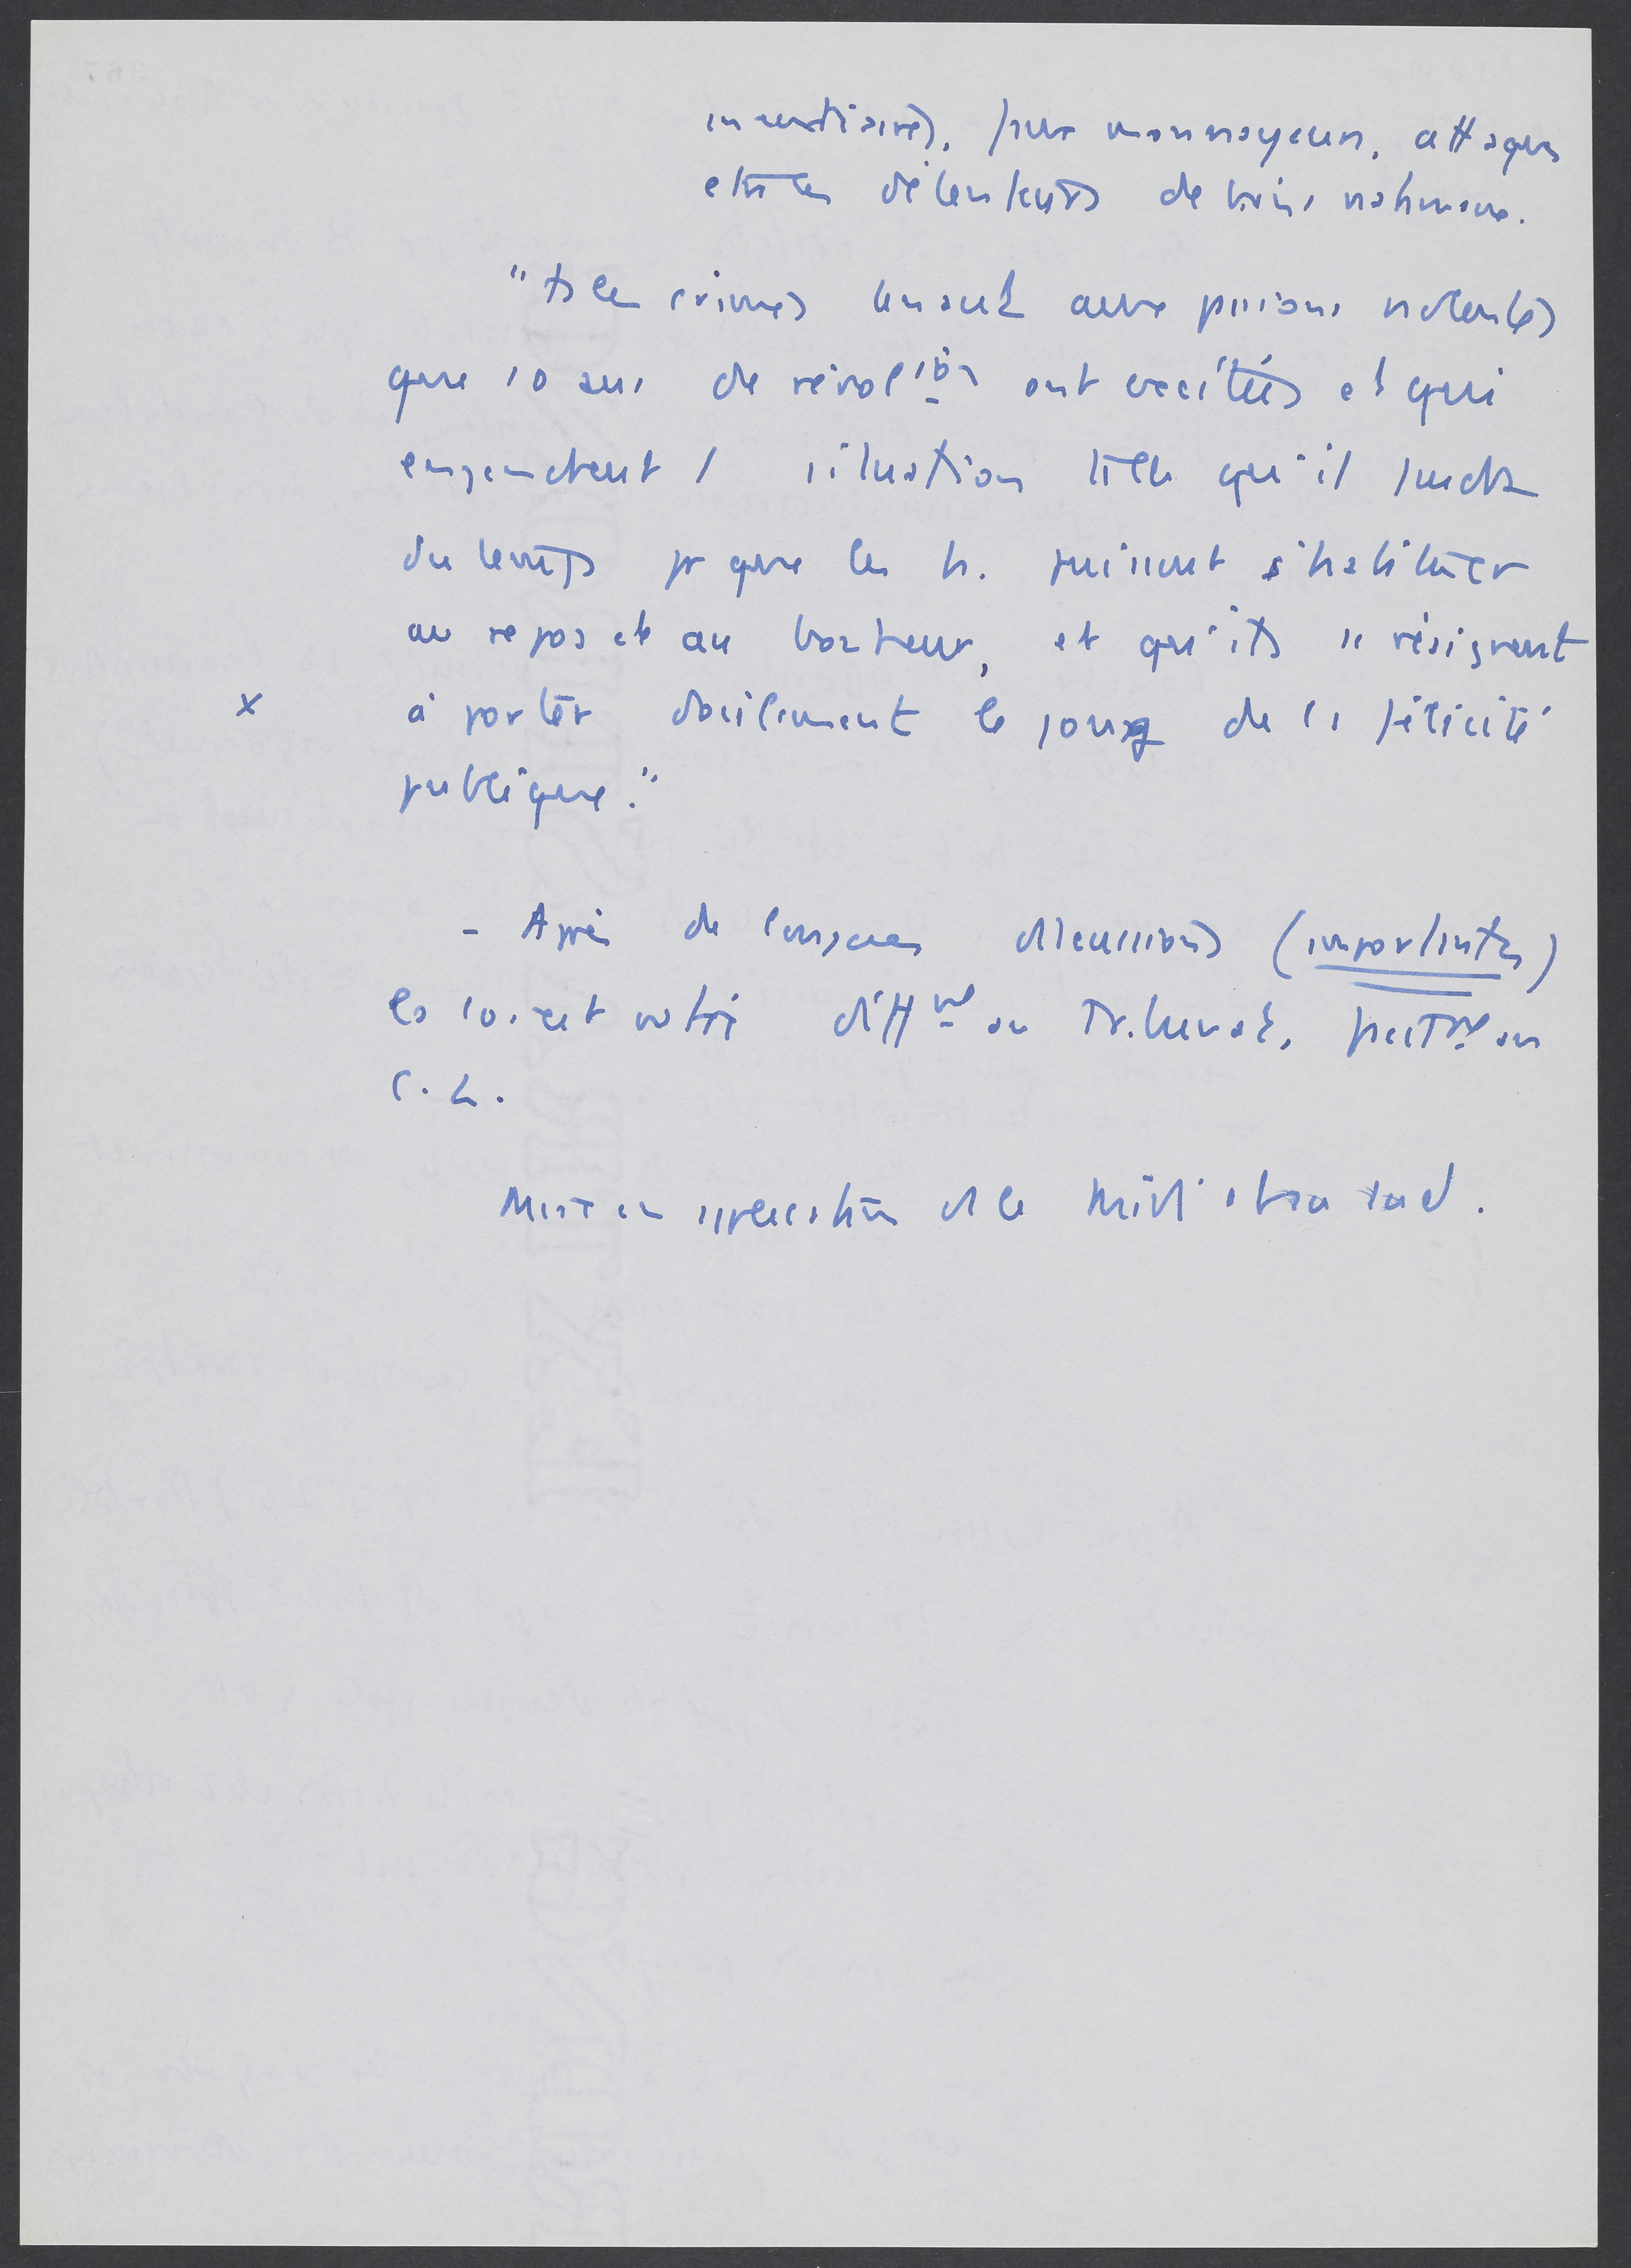 incendiaires, faux monnayeurs, attaques
ctre les détenteurs de biens nationaux.
"Ts les crimes tenant aux passions violentes
que 10 ans de révol.ion ont excitées et qui
engendrent / situation telle qu'il faudra
du temps pr que les h. puissent s'habituer
au repos et au bonheur, et qu'ils se résignent
x à porter docilement le joug de la félicité
publique."
- Après de longues discussions (importantes)
la loi est votée diff.mt au Tribunat, fact.mt au
C. L.
Mise en application ds le Midi et